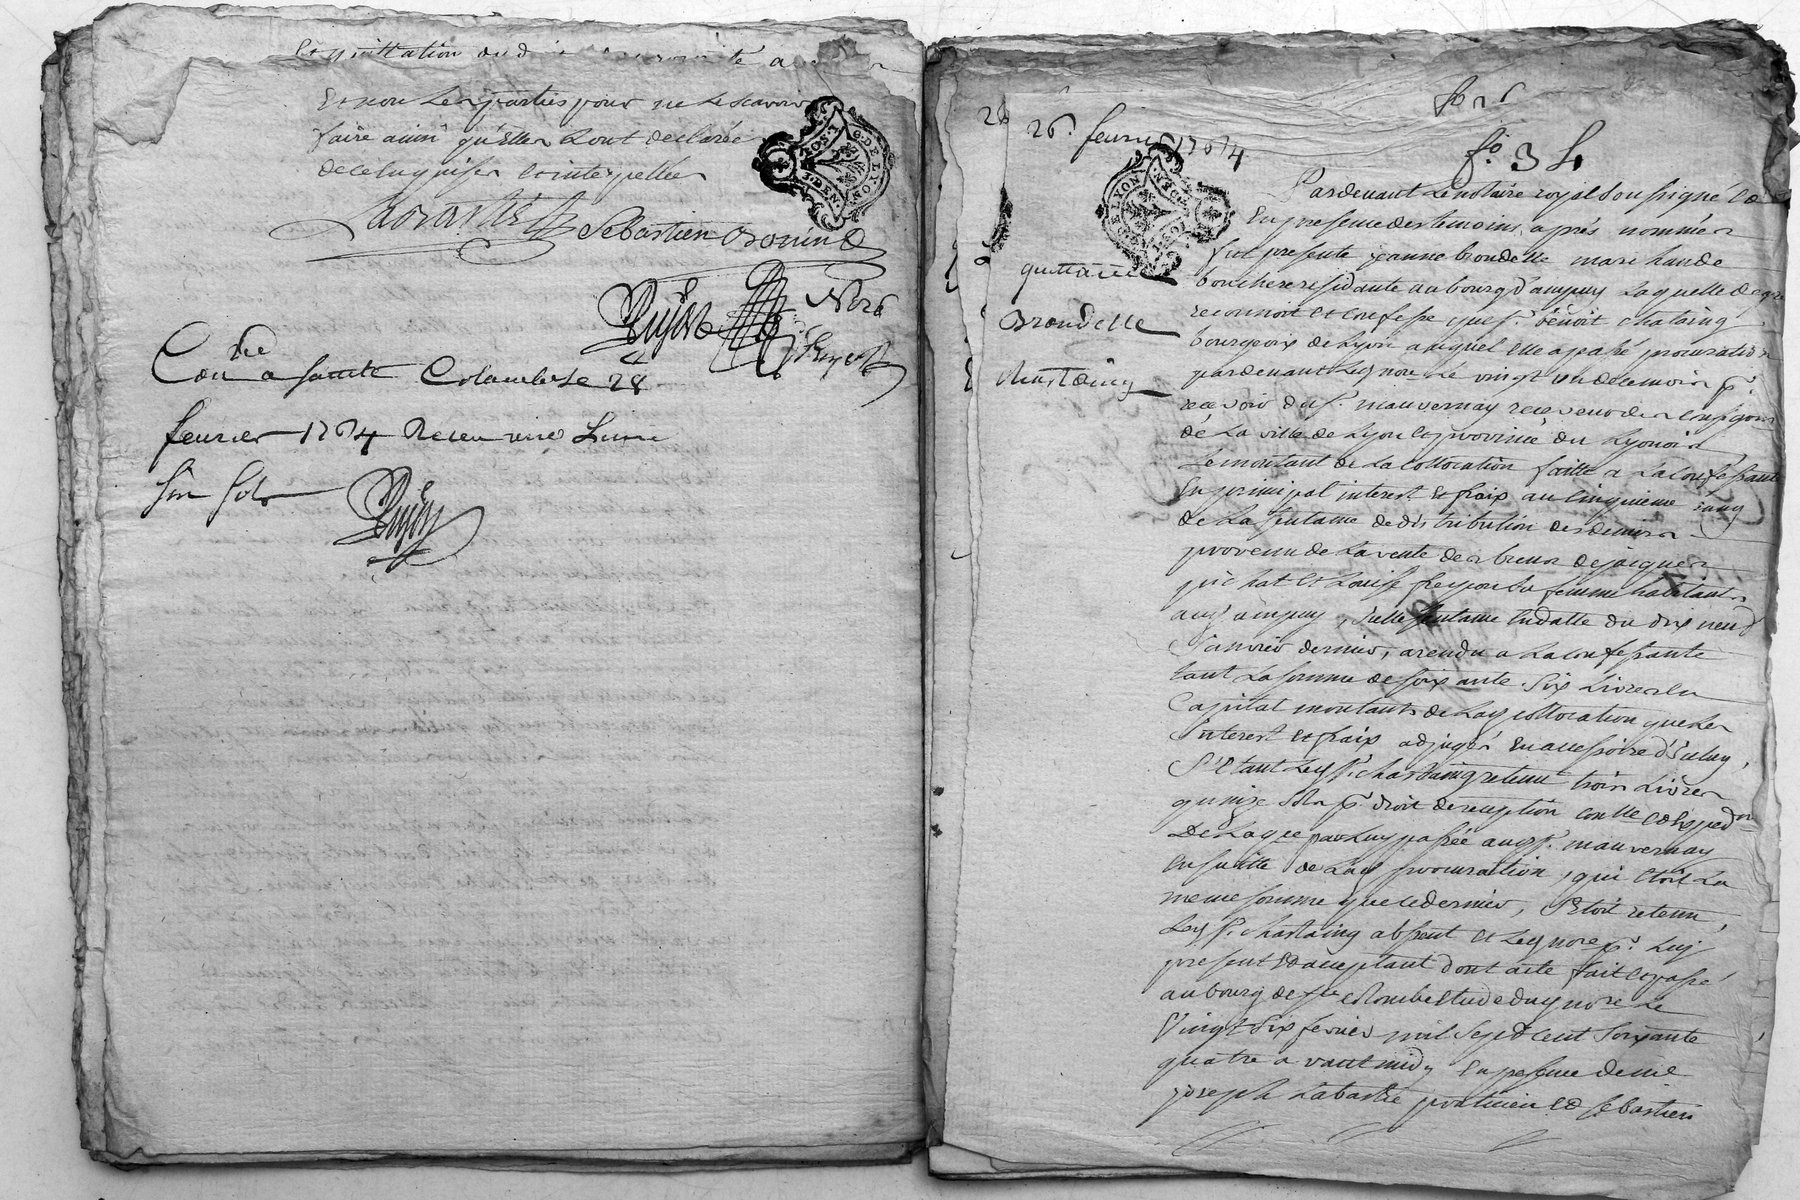 Et quittation dud
Et non Les parties pour ne Le scavoir
faire ainsi qu'Elles L'ont declarée
de ce Enquises et interpellées
Labastie Sebastien Bonin
Dujast Nore
Con lé a sainte Colombe Le 28
fevrier 1764 Receu une Livre
six sols
Dujast
26. fevrier 1764
fo. 34
Pardevant Le notaire royal soussigné Et
En presence des temoins après nommés
fut presente jeanne brondelle marchande
bouchere residante au bourg d'ampuy Laquelle de gré
reconnoit et confesse que sr. benoit chataing
bourgeois de Lyon auquel elle a passé procuration
pardevant Led nore Le vingt un decembre pr.
recevoir du sr. mauvernay receveur des consignons
de La ville de Lyon et province du Lyonois
Le montant de La collocation faitte a La confessante
En principal interest et fraix au cinquieme rang
de La sentance de distribution des deniers
provenu de La vente des biens de jacques
pichat et Louise freyssou sa femme habitants
aud ampuy, Lad sentance En datte du dix neuf
janvier dernier, a rendu a La confessante
tant La somme de soixante six Livres En
Capital montant de Lad collocation que Les
interest et fraix adjugés En accessoire d'iceluy,
s'Etant Led sr. chastaing retenu trois Livres
quinze sols pr. droit de reception contrôle et Exped on
de La qce par Luy passée aud sr. mauvernay
Ensuitte de Lad procuration, qui Etoit La
meme somme que ce dernier, s'Etoit retenu,
Led sr. chastaing absent et Led nore pr. Luy
present Et acceptant dont acte fait et passé
au bourg de ste colombe Etude dud nore Le
vingt six fevrier mil sept cent soixante
quatre avant midy En presence de me
joseph Labastie praticien et sebastien
quittance
Brondelle
chastaing